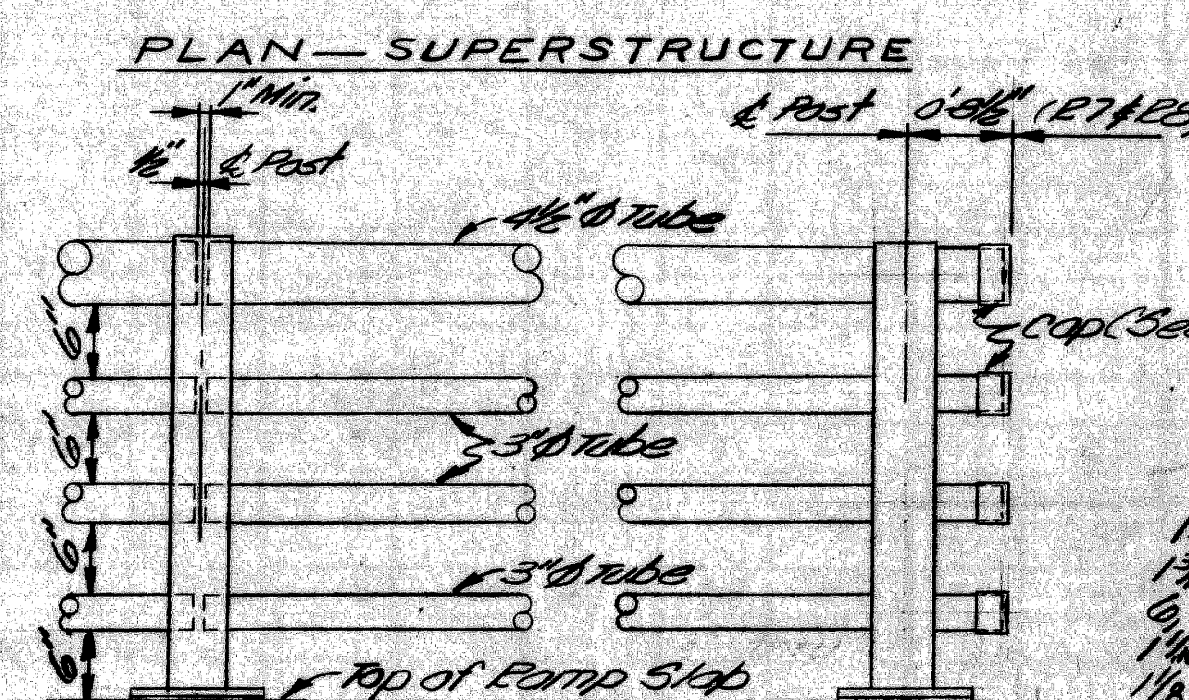 PLAN — SUPERSTRUCTURE
1" Min.
½" ℄ Post
℄ Post 0'-8½"
4½" Ø Tube
6"
Cap
6"
3" Ø Tube
6"
3" Ø Tube
6"
Top of Ramp Slab